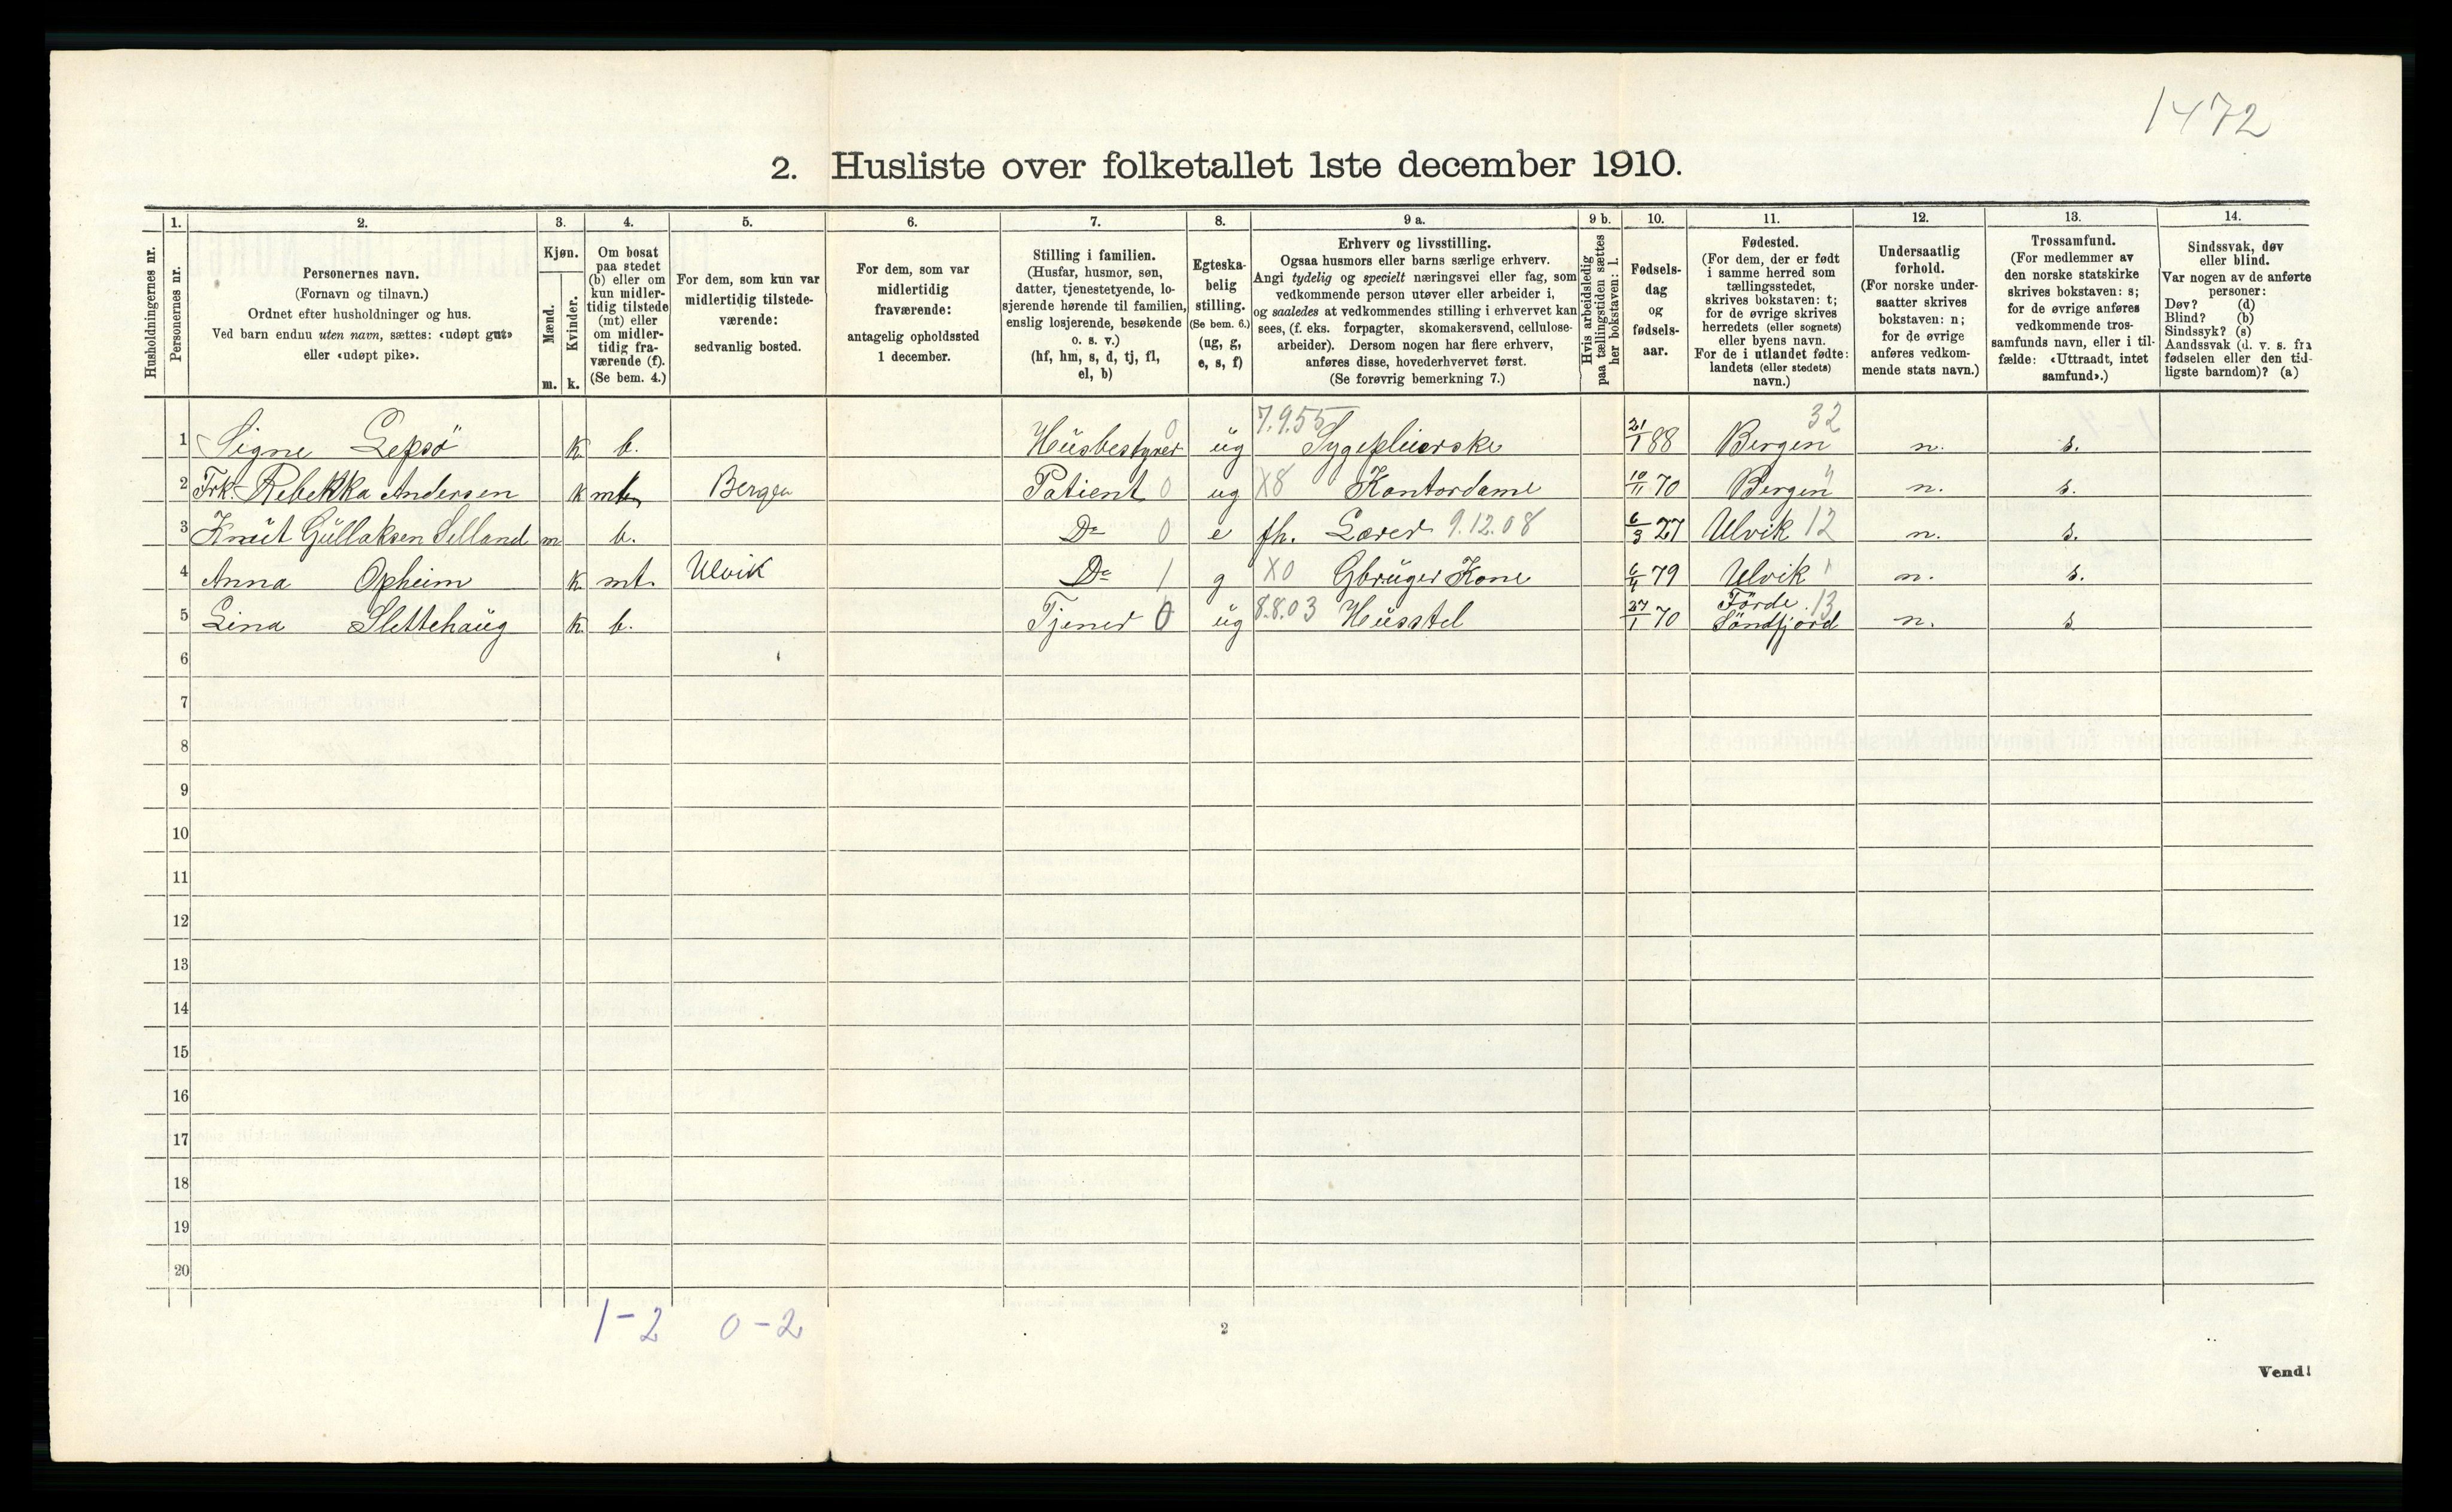 1472
2. Husliste over folketallet 1ste december 1910.
1.
2.
3.
4.
5.
6.
7.
8.
9 a.
9 b.
10.
11.
12.
13.
14.
Husholdningernes nr.
Personernes nr.
Personernes navn.
(Fornavn og tilnavn.)
Ordnet efter husholdninger og hus.
Ved barn endnu uten navn, sættes: «udøpt gut»
eller «udøpt pike».
Kjøn.
Mænd.
Kvinder.
m. k.
Om bosat
paa stedet
(b) eller om
kun midler-
tidig tilstede
(mt) eller
om midler-
tidig fra-
værende (f).
(Se bem. 4.)
For dem, som kun var
midlertidig tilstede-
værende:
sedvanlig bosted.
For dem, som var
midlertidig
fraværende:
antagelig opholdssted
1 december.
Stilling i familien.
(Husfar, husmor, søn,
datter, tjenestetyende, lo-
sjerende hørende til familien,
enslig losjerende, besøkende
o. s. v.)
(hf, hm, s, d, tj, fl,
el, b)
Egteska-
belig
stilling.
(Se bem. 6.)
(ug, g,
e, s, f)
Erhverv og livsstilling.
Ogsaa husmors eller barns særlige erhverv.
Angi tydelig og specielt næringsvei eller fag, som
vedkommende person utøver eller arbeider i,
og saaledes at vedkommendes stilling i erhvervet kan
sees, (f. eks. forpagter, skomakersvend, cellulose-
arbeider). Dersom nogen har flere erhverv,
anføres disse, hovederhvervet først.
(Se forøvrig bemerkning 7.)
Hvis arbeidsledig
paa tællingstiden sættes
her bokstaven: l.
Fødsels-
dag
og
fødsels-
aar.
Fødested.
(For dem, der er født
i samme herred som
tællingsstedet,
skrives bokstaven: t;
for de øvrige skrives
herredets (eller sognets)
eller byens navn.
For de i utlandet fødte:
landets (eller stedets)
navn.)
Undersaatlig
forhold.
(For norske under-
saatter skrives
bokstaven: n;
for de øvrige
anføres vedkom-
mende stats navn.)
Trossamfund.
(For medlemmer av
den norske statskirke
skrives bokstaven: s;
for de øvrige anføres
vedkommende tros-
samfunds navn, eller i til-
fælde: «Uttraadt, intet
samfund».)
Sindssvak, døv
eller blind.
Var nogen av de anførte
personer:
Døv? (d)
Blind? (b)
Sindssyk? (s)
Aandssvak (d. v. s. fra
fødselen eller den tid-
ligste barndom)? (a)
1 Signe Lepsö k b. Husbestyrer 0 ug 7.9.55 Sygepleierske 21/1 88 Bergen 32 n. s.
2 Frk. Rebekka Andersen k mt Bergen Patient 0 ug X8 Kontordame 10/11 70 Bergen " n. s.
3 Knut Gullaksen Selland m b. Do 0 e fh. Lærer 9.12.08 6/3 27 Ulvik 12 n. s.
4 Anna Opheim k mt. Ulvik Do 1 g X0 Gbruger Kone 6/4 79 Ulvik " n. s.
5 Lina Slettehaug k b. Tjener 0 ug 8.8.03 Husstel 27/1 70 Förde 13
Söndfjord n. s
6
7
8
9
10
11
12
13
14
15
16
17
18
19
20
1-2 0-2
2
Vend!